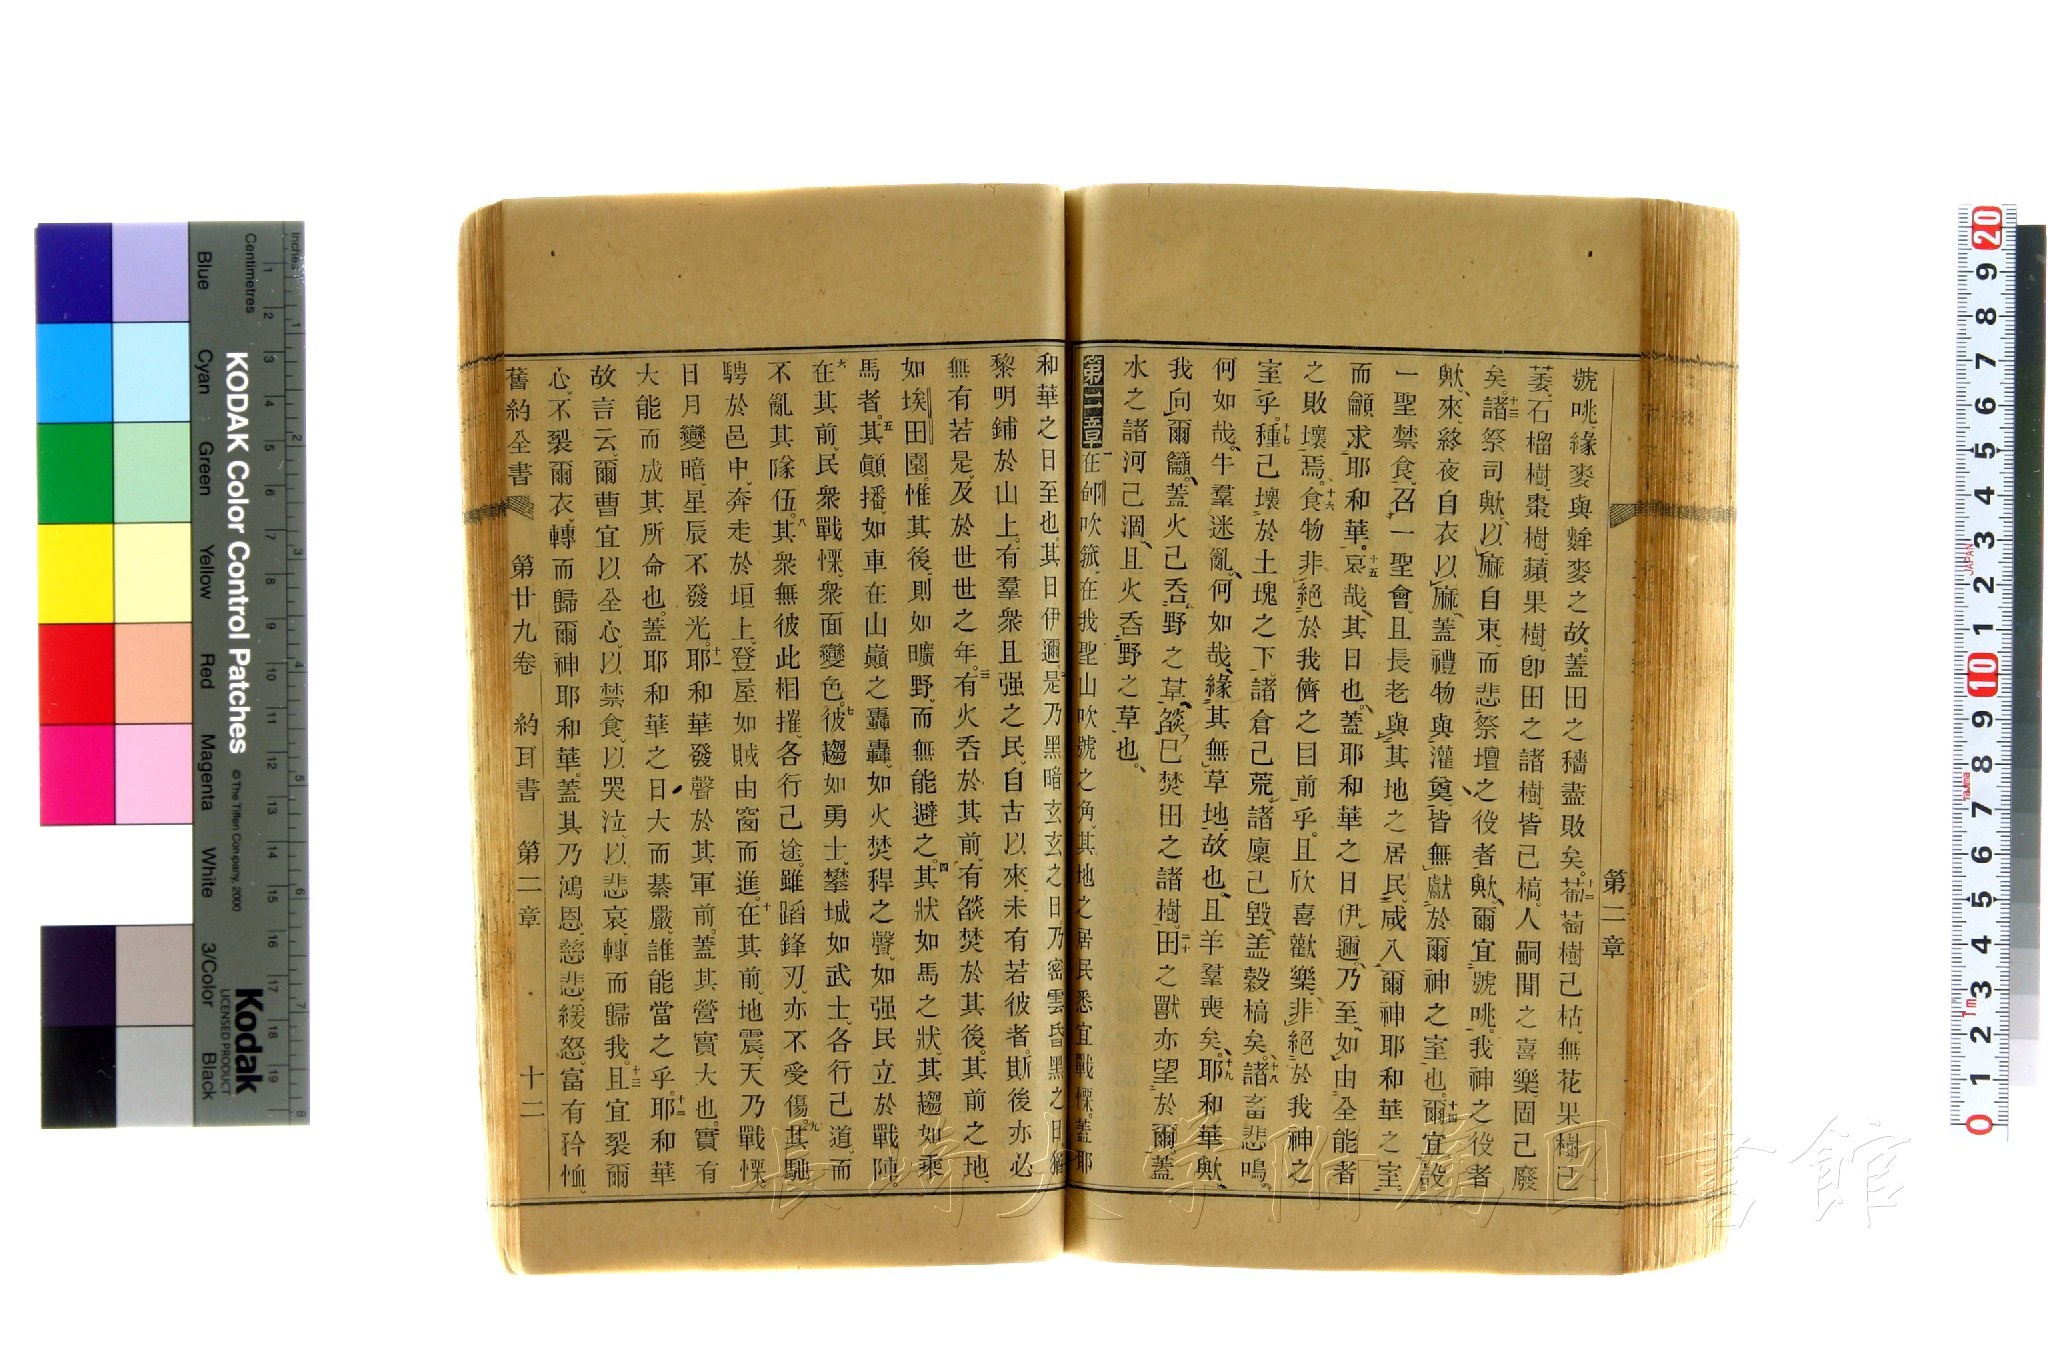 號咷、緣麥與麰麥之故、蓋田之穡盡敗矣。十二葡萄樹己枯、無花果樹已
萎、石榴樹、棗樹、蘋果樹、卽田之諸樹、皆己槁、人嗣聞之喜樂固己廢
矣。十三諸祭司歟、以麻自束、而悲、祭壇之役者歟、爾宜號咷、我神之役者
歟、來、終夜自衣以麻、蓋禮物與灌奠、皆無獻於爾神之室也。十四爾宜設
一聖禁食、召一聖會、且長老與其地之居民、咸入爾神耶和華之室、
而龥求耶和華。十五哀哉、其日也、蓋耶和華之日伊邇、乃至、如由全能者
之敗壞焉。十六食物非絕於我儕之目前乎、且欣喜歡樂、非絕於我神之
室乎。十七種己壞於土塊之下、諸倉己荒、諸廩己毀、盖穀槁矣。十八諸畜悲鳴、
何如哉、牛羣迷亂、何如哉、緣其無草地、故也、且羊羣喪矣。十九耶和華歟、
我向爾籲、蓋火己吞野之草、燄已焚田之諸樹。二十田之獸亦望於爾、蓋
水之諸河己涸、且火吞野之草也。
第二章 一在郇吹鈲、在我聖山吹號之角、其地之居民悉宜戰慄、蓋耶
和華之日至也、其日伊邇。二是乃黑暗玄玄之日、乃密雲昏黑之日、猶
黎明鋪於山上、有羣衆且强之民、自古以來、未有若彼者、斯後亦必
無有若是、及於世世之年。三有火吞於其前、有燄焚於其後、其前之地、
如埃田園、惟其後、則如曠野、而無能避之。四其狀如馬之狀、其趨如乘
馬者。五其顚播、如車在山巓之轟轟、如火焚稈之聲、如强民立於戰陣。
六在其前、民衆戰慄、衆面變色。七彼趨如勇士、攀城如武士、各行己道、而
不亂其隊伍。八其衆無彼此相摧、各行己途、雖蹈鋒刃、亦不受傷。九其馳
騁於邑中、奔走於垣上、登屋如賊由窗而進。十在其前、地震、天乃戰慄、
日月變暗、星辰不發光。十一耶和華發聲於其軍前、蓋其營實大也、實有
大能而成其所命也、蓋耶和華之日、大而綦嚴、誰能當之乎。十二耶和華
故言云、爾曹宜以全心、以禁食、以哭泣、以悲哀轉而歸我。十三且宜裂爾
心、不裂爾衣、轉而歸爾神耶和華、蓋其乃鴻恩、慈悲、緩怒、富有矜恤、
舊約全書 第廿九卷 約耳書 第二章 十二
第二章
KODAK Color Control Patches
© The Tiffen Company, 2000
Kodak
LICENSED PRODUCT
Inches
Centimetres
Blue
Cyan
Green
Yellow
Red
Magenta
White
3/Color
Black
長崎大学附属図書館